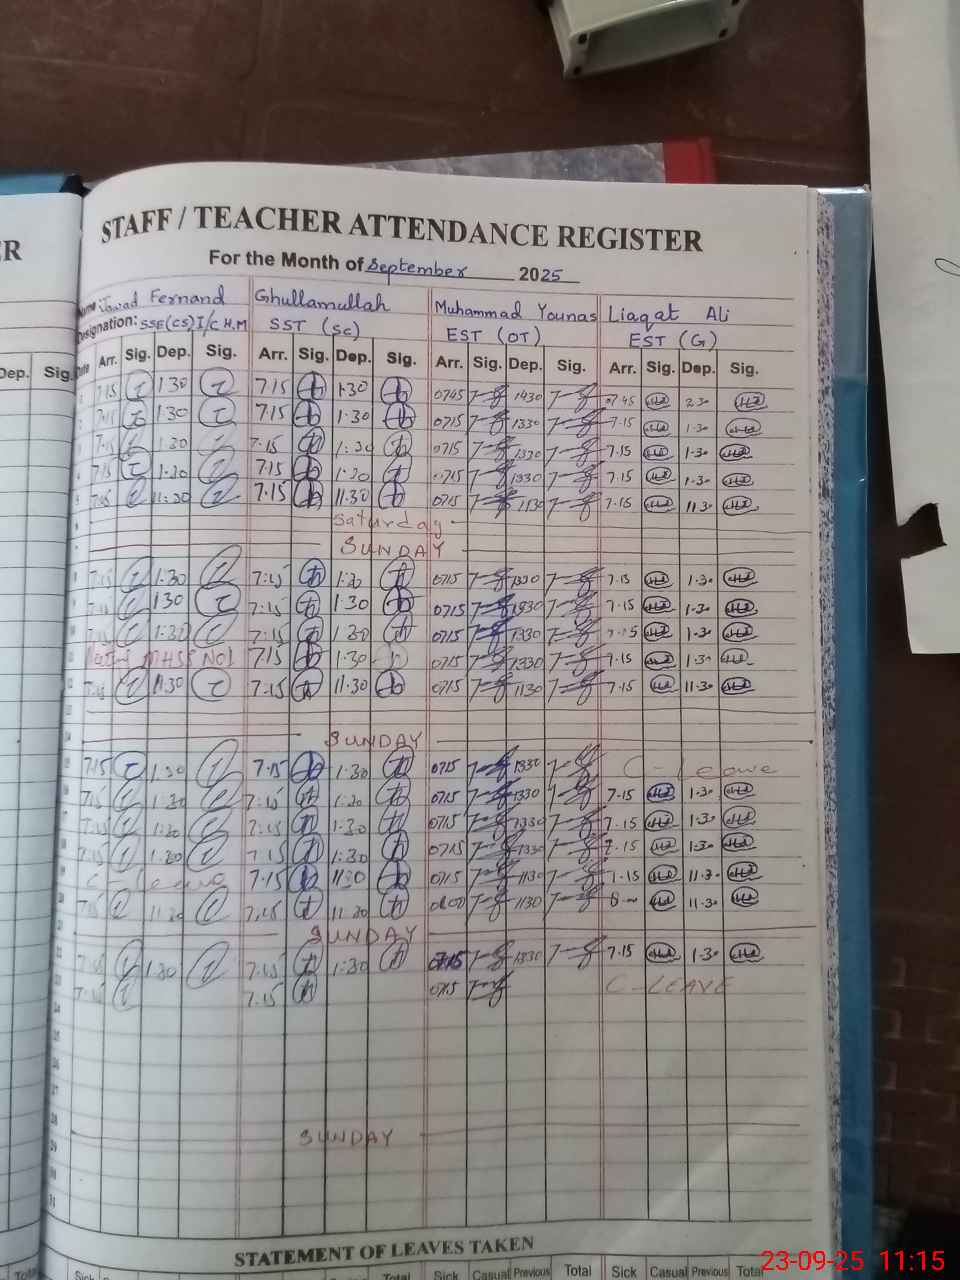 ER
Dep. Sig.
STAFF / TEACHER ATTENDANCE REGISTER
For the Month of September 2025
Name: Jawad Fernand Ghullamullah Muhammad Younas Liaqat Ali
Designation: SSE(CS)I/C H.M SST (SC) EST (OT) EST (G)
Date Arr. Sig. Dep. Sig. Arr. Sig. Dep. Sig. Arr. Sig. Dep. Sig. Arr. Sig. Dep. Sig.
7.15 1.30 7.15 1.30 0745 1430 0745 2.30
7.15 1.30 7.15 1.30 0715 1330 7.15 1.30
7.15 1.30 7.15 1.30 0715 1330 7.15 1.30
7.15 1.30 7.15 1.30 0715 1330 7.15 1.30
7.15 11.30 7.15 11.30 0715 1130 7.15 11.30
Saturday
SUNDAY
7.15 1.30 7.15 1.30 0715 1330 7.15 1.30
7.15 1.30 7.15 1.30 0715 1330 7.15 1.30
7.15 1.30 7.15 1.30 0715 1330 7.15 1.30
MHSS NO1 7.15 1.30 0715 1330 7.15 1.30
7.15 11.30 7.15 11.30 0715 1130 7.15 11.30
SUNDAY
7.15 1.30 7.15 1.30 0715 1330 C-Leave
7.15 1.30 7.15 1.30 0715 1330 7.15 1.30
7.15 1.30 7.15 1.30 0715 1330 7.15 1.30
7.15 1.30 7.15 1.30 0715 1330 7.15 1.30
C-leave 7.15 1130 0715 1130 7.15 11.30
7.15 11.30 7.15 11.30 0800 1130 8- 11.30
SUNDAY
7.15 1.30 7.15 1.30 0715 1330 7.15 1.30
7.15 7.15 0715 C-LEAVE
SUNDAY
STATEMENT OF LEAVES TAKEN
Total Sick Casual Total Sick Casual Previous Total Sick Casual Previous Total
23-09-25 11:15